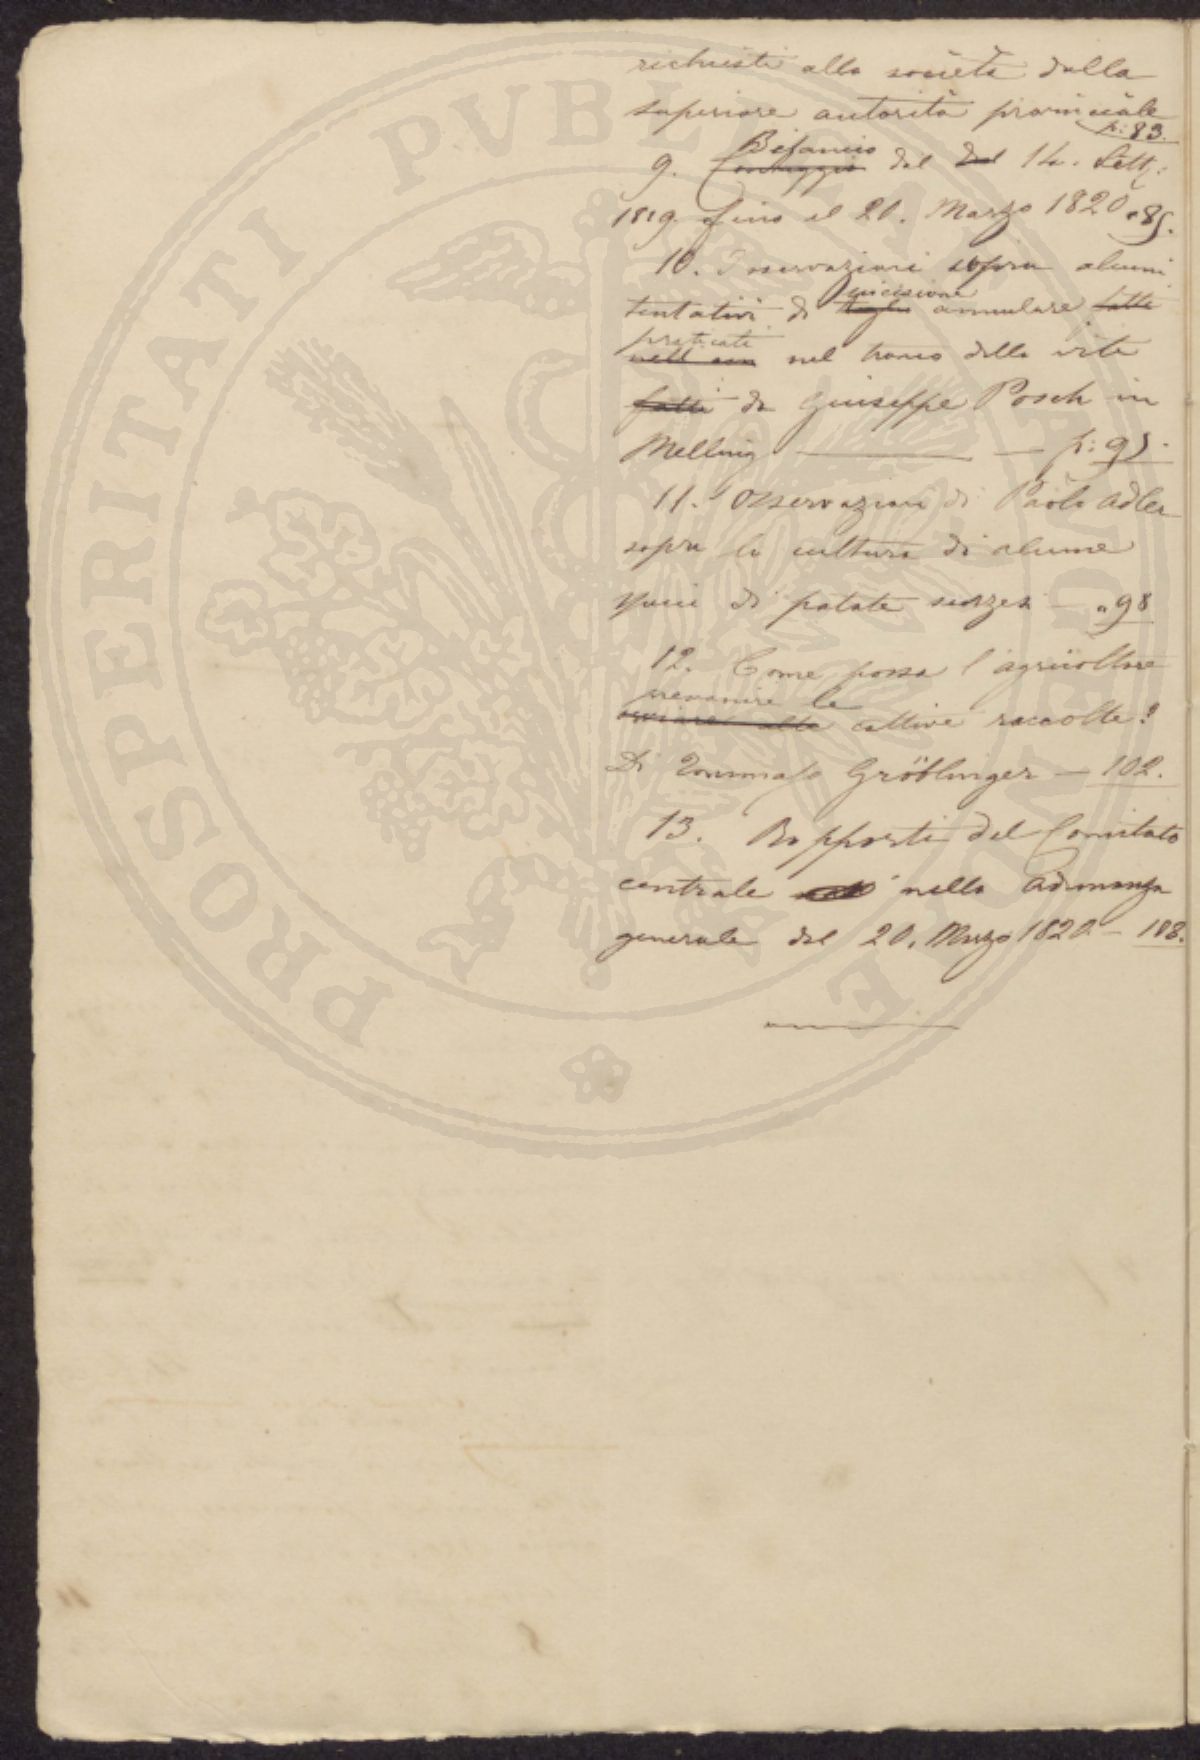 richiesti alla società dalla
superiore autorità provinciale
p: 83.
Bilancio
9. Conteggio del del 14. Sett:
1819. fino al 20. Marzo 1820 " 85.
10. Osservazioni sopra alcuni
incisione
tentativi di taglio annulare fatti
praticati
nell' nel tronco della vite
fatti da Giuseppe Posch in
Melling — p: 95.
11. Osservazioni di Paolo Adler
sopra la cultura di alcune
specie di patate — " 98
12. Come possa l'agricoltore
prevenire le
ovviare alle cattive raccolte?
Di Tommaso Gröblinger — 102.
13. Rapporti del Comitato
centrale nella adunanza
generale del 20. Marzo 1820 — 108.
PROSPERITATI PVBLICAE